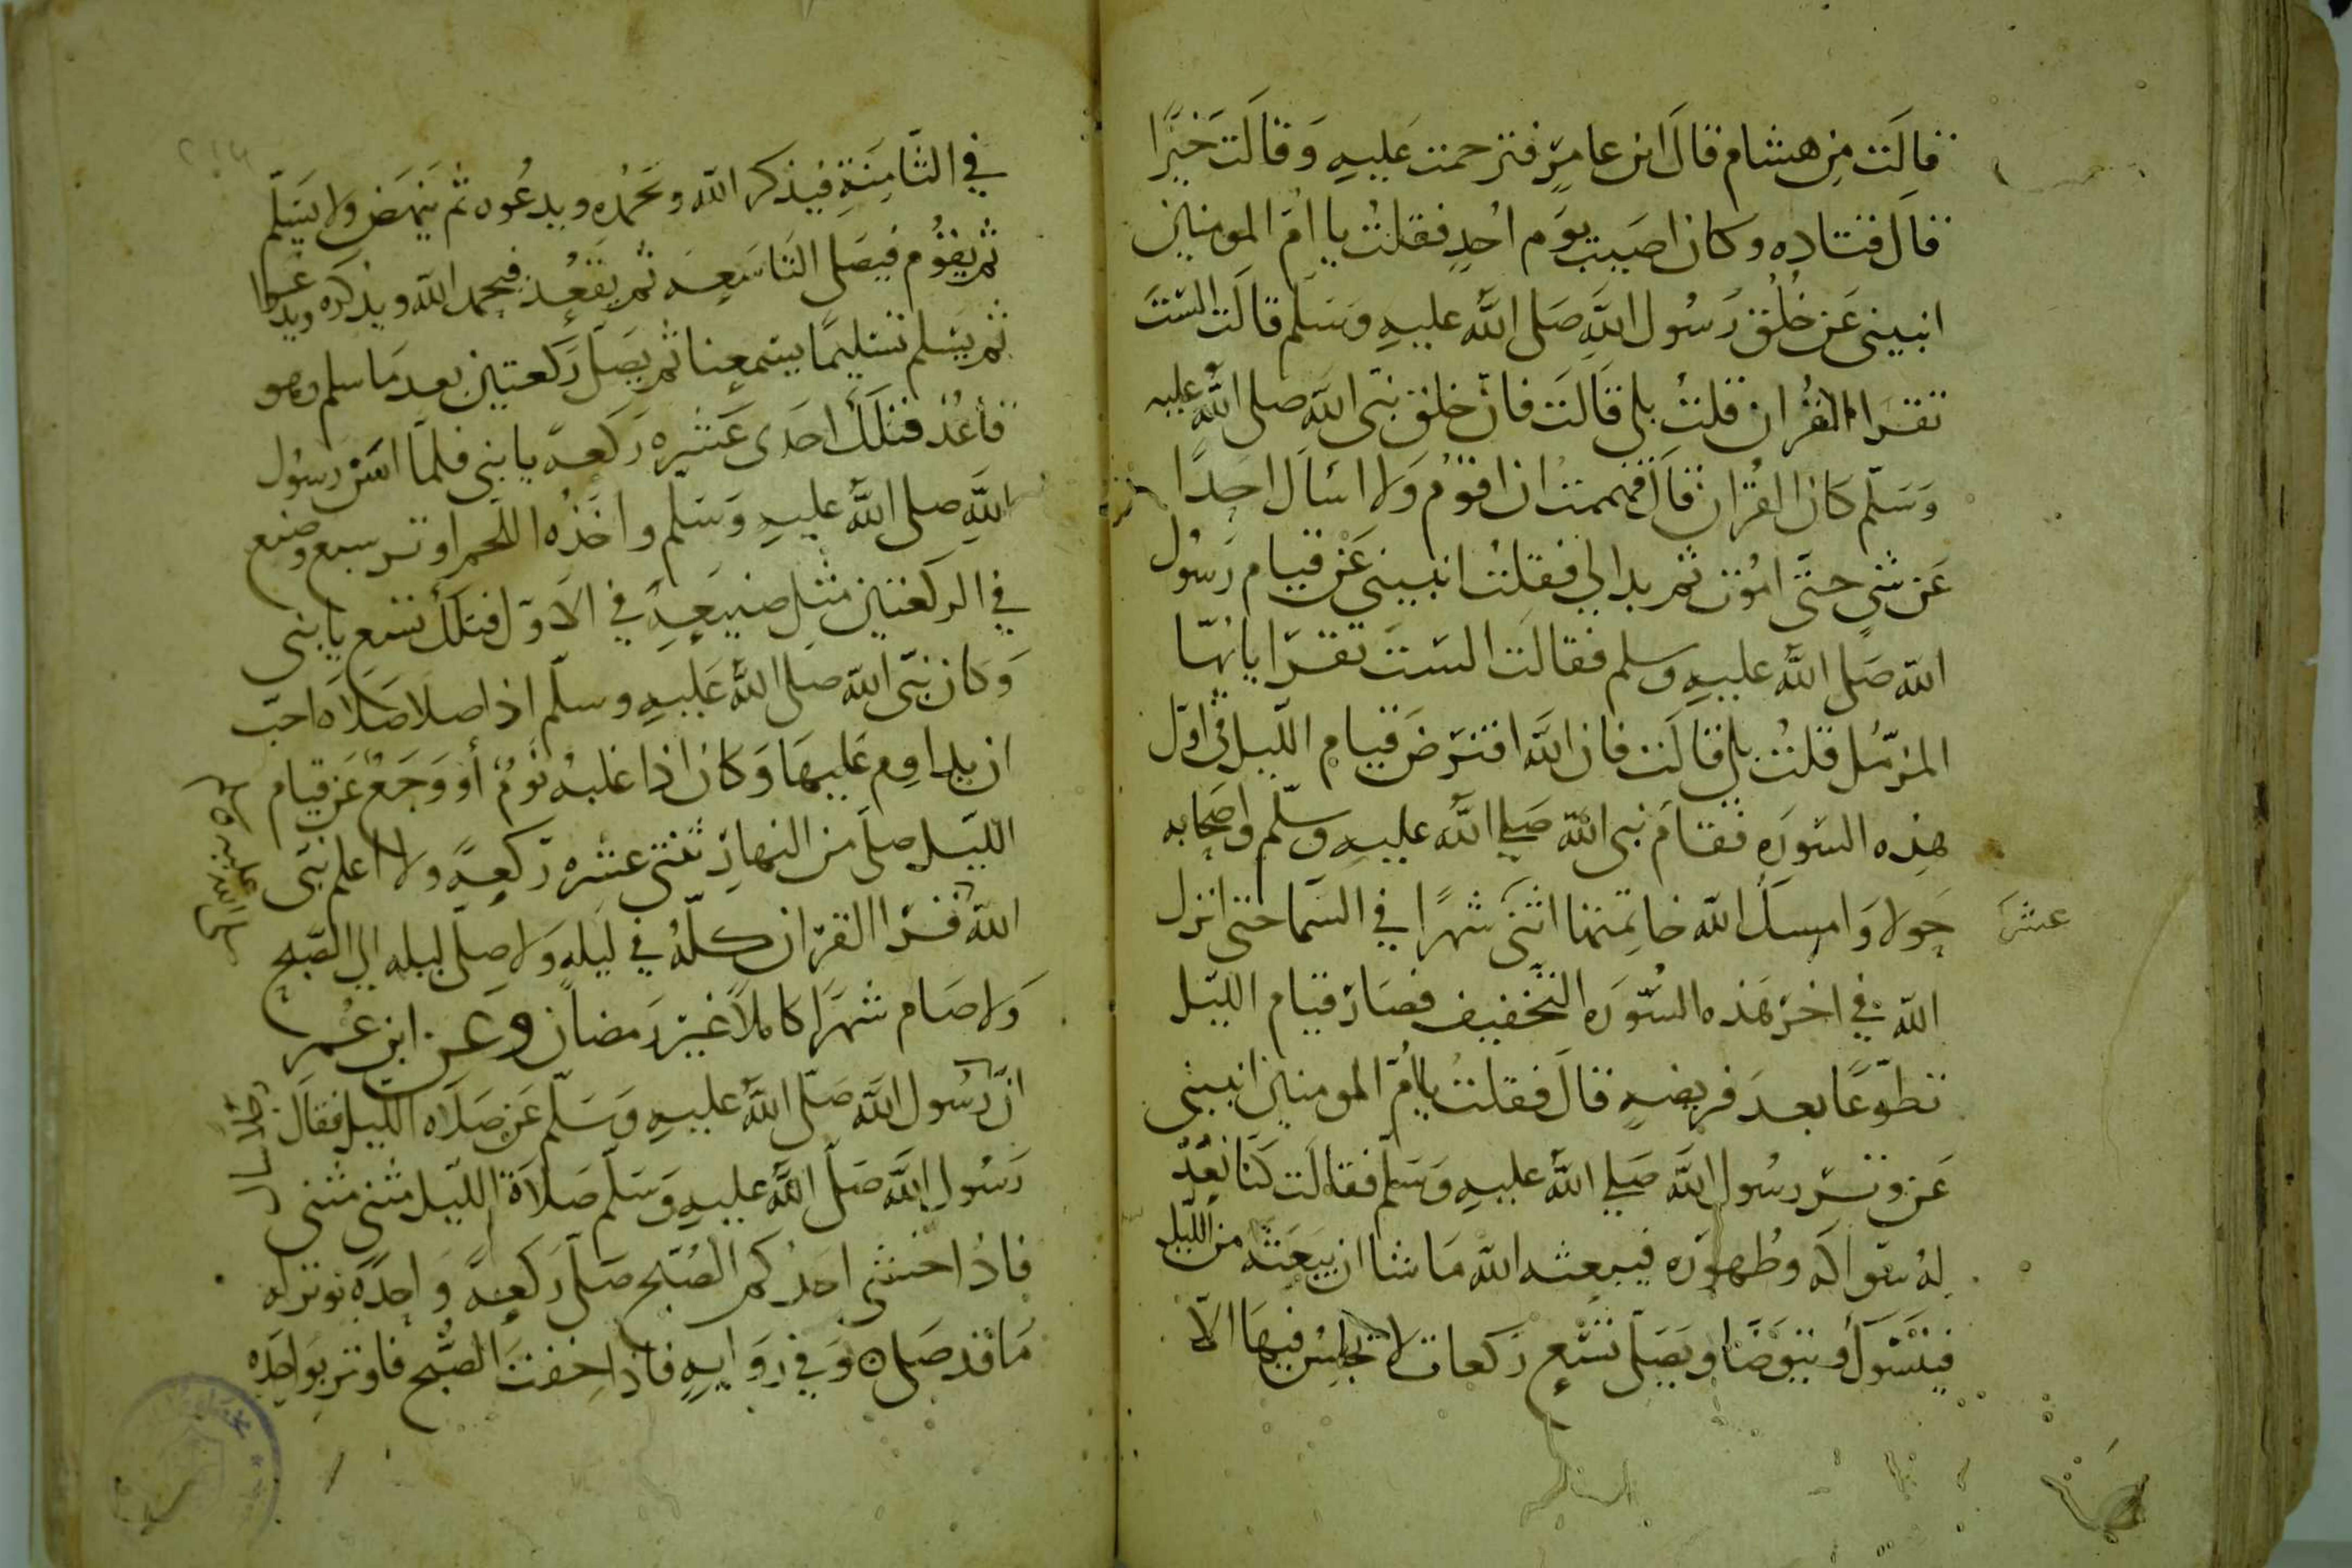 قالَت مِن هشام قالَ ابن عامرٍ فترحمت عَليهِ وَقالَت خَيرًا
قالَ قتاده وكان اصَيبَ يوَم احُدٍ فقلتُ يا امَّ المومنين
انبيني عَن خُلُق رَسُول اللهِ صَلى اللهُ عليهِ وَسَلم قالَت الستَ
تقرَا القُران قلتُ بلى قَالَت فانّ خلق نبّى اللهَ صلى اللهُ عليه
وَسَلّم كانَ القُران قالَ فهممتُ ان اقوُمَ وَلا اسَاَل احَدًا
عَن شيٍ حتّى امُوت ثم بدا لي فقلتُ انبيني عَن قيام رَسُول
الله صَلى اللهُ عليهِ وسلم فقالَت السَتَ تقرَا يا ايهّا
المزمّل قلتُ بلى قالَت فان اللهَ افترضَ قيام اللّيل في اوّل
هذه السّورَه فقامَ نبى الله صَلى اللهُ عليهِ وسلّم واصحَابه
حَولا وَامسكَ الله خاتمتها اثنَى شهرًا في السَّما حتى انزل
عشر
الله في اخرَ هَذه السُّورَه التخفيف فصَارَ قيام الليَل
تطوّعًا بعدَ فريضهٍ قالَ فقلتُ يا امَّ المومنين انبيني
عَن وترِ رسُول اللهَ صَلى اللهُ عليهِ وَسَلم فقالَت كنّا نعُدُّ
لهُ سوَاكه وطُهورَه فيبعثه الله مَا شا ان يبَعَثهُ من اللّيل
فيتَسَوّكُ ويتوَضَّا ويَصَلّى تسْع ركعات لا يجلسُ فيهَا الاّ
في الثَّامِنَةِ فيذكر الله ويحَمدُه ويدعُوه ثم ينهَض ولا يسَلّم
ثم يقوُم فيصَلى التَاسَعِه ثم يقَعُد فيحمد الله ويذكره ويدعوا
ثم يسَلم تسَليمًا يسَمعنا ثم يصَلى رَكعتين بعدَ مَا سلم وهو
قاعُد فتلَكَ احَدَى عَشرِه رَكعه يا بنى فلمّا اسَن رسوُل
اللهَ صلى اللهُ عليهِ وَسَلم واخَذُه اللحم اوتر بسبع وصَنع
في الركعَتين مثِل صنيعَهِ في الاَوّل فتلكَ تسَع يا بنى
وَكان نبّى الله صلى اللهُ عَليهِ وسلّم اذا صلا صَلاَه احبّ
ان يداوِم عَليهَا وَكان اذا غلبهُ نوَمٌ أو وَجَعٌ عَن قيام
الليّل صلى من النهارِ ثنتى عشره ركعهً ولا اعلم نبّى
الله قرَا القرَان كلّهُ في ليَلهٍ وَلا صلّى ليله الى الصّبح
وَلا صَام شهرًا كاملاً غيرَ رَمضان وعَن ابن عُمر
انَّ رسُول اللهَ صَلّى اللهَ عليهِ وَسَلّم عَن صَلاَه الليل فقالَ
رَسُول اللهَ صَلّى اللهُ عليهِ وَسَلم صَلاَة الليَل مثنى مثنى
فاذُا خشى احَدُكم الصُبح صَلّى رَكعهً وَاحِدَةً توتر له
مَا قد صَلى ٥ وَفي رِوَايهٍ فاذا خِفتَ الصُّبح فاوتر بوَاحِدَه